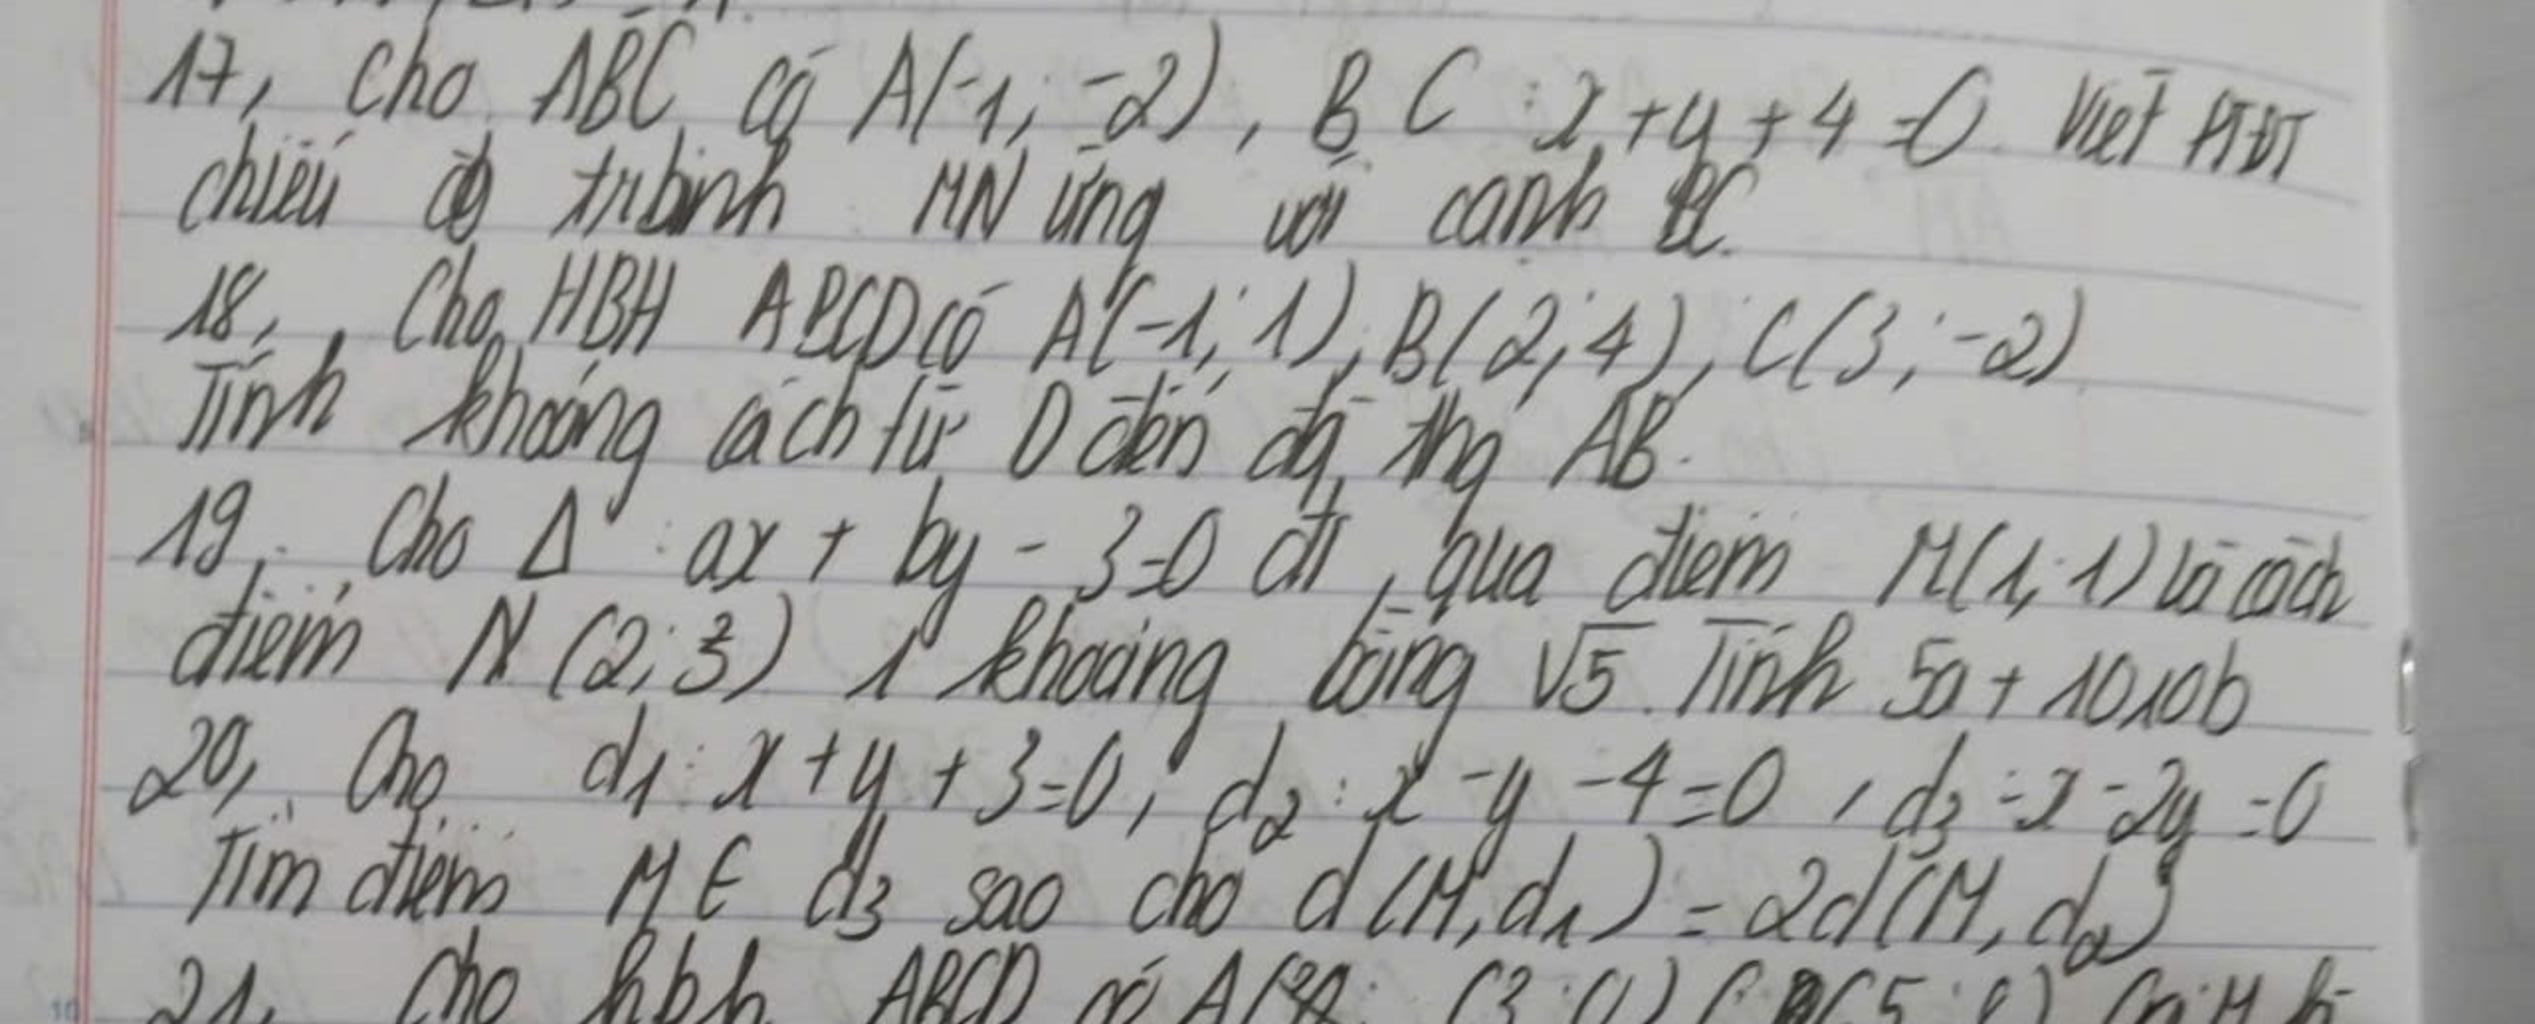 17, Cho ABC có A(-1; -2), BC: x+y+4=0. Viết PTĐT
chiếu đg trbình MN ứng với cạnh BC.
18, Cho HBH ABCD có A(-1; 1), B(2; 4), C(3; -2)
Tính khoảng cách từ D đến đg thg AB.
19, Cho Δ: ax + by - 3=0 đi qua điểm M(1; 1) và cách
điểm N (2; 3) 1 khoảng bằng √5. Tính 5a + 1010b
20, Cho d1: x+y+3=0, d2: x-y-4=0, d3: x-2y=0
Tìm điểm M ∈ d3 sao cho d(M,d1) = 2d(M,d2)
21, Cho hbh ABCD có